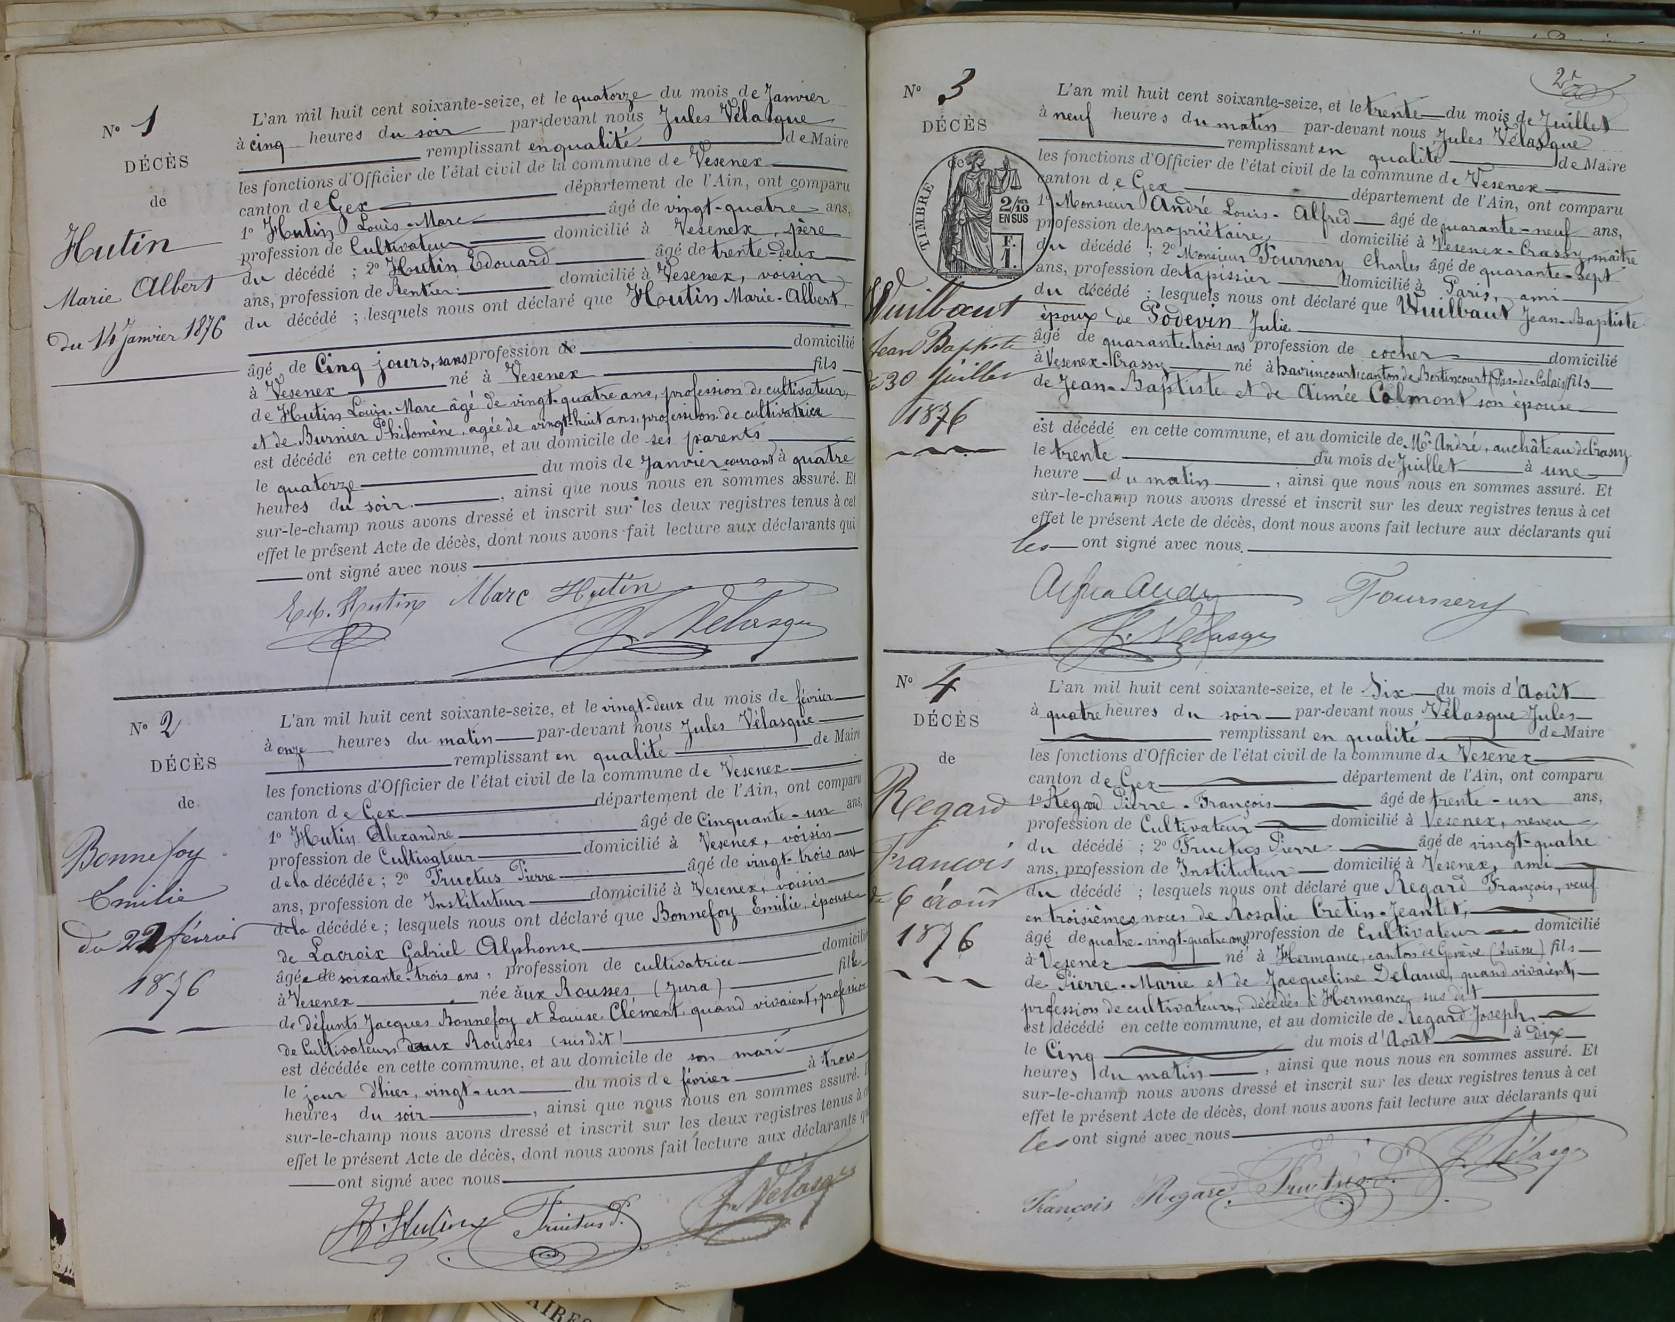 N° 1
DÉCÈS
de
Hutin
Marie Albert
du 14 Janvier 1876
L'an mil huit cent soixante-seize, et le quatorze du mois de Janvier
à cinq heures du soir par-devant nous Jules Vélasque
remplissant en qualité de Maire
les fonctions d'Officier de l'état civil de la commune de Vesenex
canton de Gex département de l'Ain, ont comparu
1° Hutin Louis-Marc âgé de vingt-quatre ans,
profession de Cultivateur domicilié à Vesenex, père
du décédé ; 2° Hutin Edouard âgé de trente-deux
ans, profession de Rentier domicilié à Vesenex, voisin
du décédé ; lesquels nous ont déclaré que Hutin Marie-Albert
âgé de Cinq jours, sans profession de domicilié
à Vesenex né à Vesenex fils
de Hutin Louis-Marc âgé de vingt-quatre ans, profession de cultivateur,
et de Burnier Philomène, agée de vingt-huit ans, profession de cultivatrice
est décédé en cette commune, et au domicile de ses parents
le quatorze du mois de Janvier courant à quatre
heures du soir, ainsi que nous nous en sommes assuré. Et
sur-le-champ nous avons dressé et inscrit sur les deux registres tenus à cet
effet le présent Acte de décès, dont nous avons fait lecture aux déclarants qui
ont signé avec nous
Ed. Hutin Marc Hutin
J. Velasque
N° 2
DÉCÈS
de
Bonnefoy
Emilie
du 22 février
1876
L'an mil huit cent soixante-seize, et le vingt-deux du mois de février
à onze heures du matin par-devant nous Jules Vélasque
remplissant en qualité de Maire
les fonctions d'Officier de l'état civil de la commune de Vesenex
canton de Gex département de l'Ain, ont comparu
1° Hutin Alexandre âgé de Cinquante-un ans,
profession de Cultivateur domicilié à Vesenex, voisin
de la décédée ; 2° Fructus Pierre âgé de vingt-trois ans
ans, profession de Instituteur domicilié à Vesenex, voisin
de la décédée ; lesquels nous ont déclaré que Bonnefoy Emilie, épouse
de Lacroix Gabriel Alphonse
âgée de soixante-trois ans, profession de cultivatrice domicilié
à Vesenex née aux Rousses (Jura) fille
de défunts Jacques Bonnefoy et Louise Clément, quand vivaient, profession
de Cultivateurs aux Rousses (susdit)
est décédée en cette commune, et au domicile de son mari
le jour d'hier, vingt-un du mois de février à trois
heures du soir, ainsi que nous nous en sommes assuré.
sur-le-champ nous avons dressé et inscrit sur les deux registres tenus à
effet le présent Acte de décès, dont nous avons fait lecture aux déclarants
ont signé avec nous
A. Hutin Fructus P. J. Velasque
27
N° 3
DÉCÈS
TIMBRE
2/10
EN SUS
F.
1.
Wuilbaut
Jean Baptiste
30 Juillet
1876
L'an mil huit cent soixante-seize, et le trente du mois de Juillet
à neuf heures du matin par-devant nous Jules Vélasque
remplissant en qualité de Maire
les fonctions d'Officier de l'état civil de la commune de Vesenex
canton de Gex département de l'Ain, ont comparu
1° Monsieur André Louis-Alfred âgé de quarante-neuf ans,
profession de propriétaire, domicilié à Vesenex-Crassy, maître
du décédé ; 2° Monsieur Fournery Charles âgé de quarante-sept
ans, profession de tapissier domicilié à Paris, ami
du décédé ; lesquels nous ont déclaré que Wuilbaut Jean-Baptiste
époux de Podevin Julie
âgé de quarante-trois ans profession de cocher domicilié
à Vesenex-Crassy né à Havrincourt, canton de Bertincourt, (Pas-de-Calais) fils
de Jean-Baptiste et de Aimée Calmont son épouse
est décédé en cette commune, et au domicile de Mr André, au château de Crassy
le trente du mois de Juillet à une
heure du matin, ainsi que nous nous en sommes assuré. Et
sur-le-champ nous avons dressé et inscrit sur les deux registres tenus à cet
effet le présent Acte de décès, dont nous avons fait lecture aux déclarants qui
les ont signé avec nous.
Alfred André Fournery
J. Vélasque
N° 4
DÉCÈS
de
Regard
François
6 Août
1876
L'an mil huit cent soixante-seize, et le Six du mois d'Août
à quatre heures du soir par-devant nous Vélasque Jules
remplissant en qualité de Maire
les fonctions d'Officier de l'état civil de la commune de Vesenex
canton de Gex département de l'Ain, ont comparu
1° Regard Pierre-François âgé de trente-un ans,
profession de Cultivateur domicilié à Vesenex, neveu
du décédé ; 2° Fructus Pierre âgé de vingt-quatre
ans, profession de Instituteur domicilié à Vesenex, ami
du décédé ; lesquels nous ont déclaré que Regard François, veuf
en troisièmes noces de Rosalie Cretin-Jeantet,
âgé de quatre-vingt-quatre ans profession de Cultivateur domicilié
à Vesenex né à Hermance, canton de Genève (Suisse) fils
de Pierre-Marie et de Jacqueline Delarue, quand vivaient,
profession de cultivateurs, décédés à Hermance, sus dit
est décédé en cette commune, et au domicile de Regard Joseph,
le Cinq du mois d'Août à dix
heures du matin, ainsi que nous nous en sommes assuré. Et
sur-le-champ nous avons dressé et inscrit sur les deux registres tenus à cet
effet le présent Acte de décès, dont nous avons fait lecture aux déclarants qui
les ont signé avec nous
François Regard Fructus P. J. Vélasque